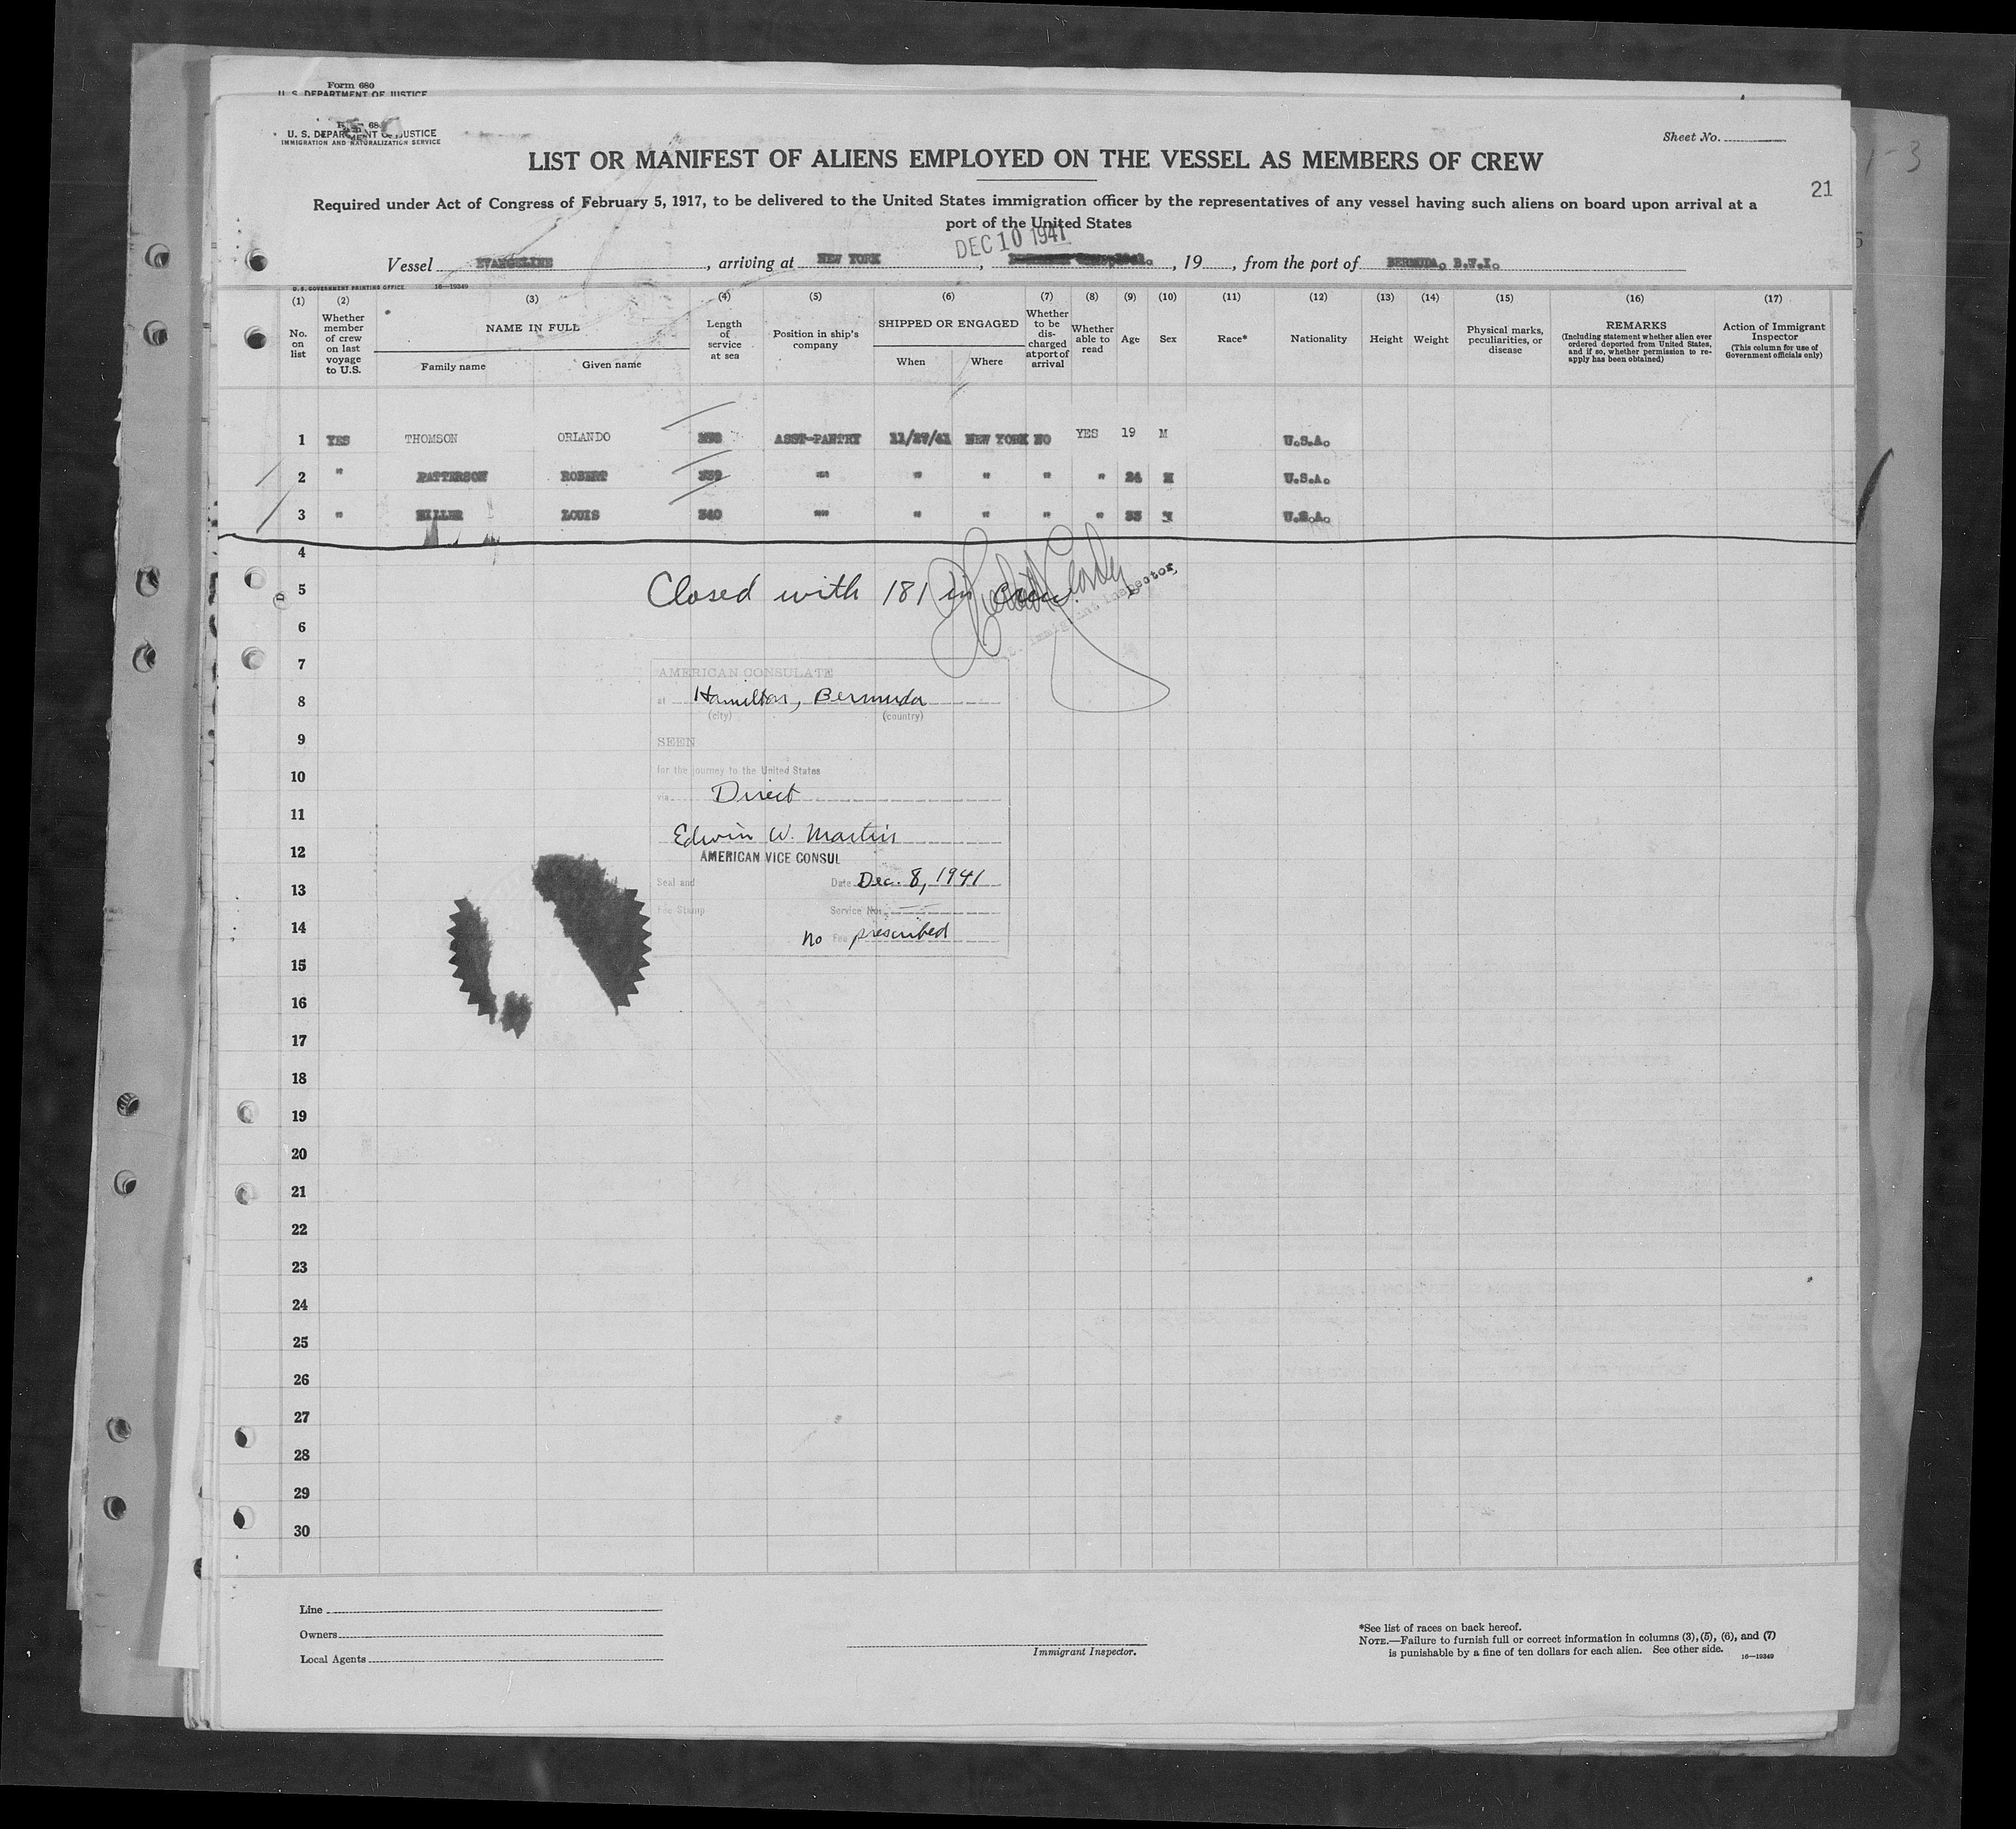 Form 680
U. S. DEPARTMENT OF JUSTICE
U. S. DEPARTMENT OF JUSTICE
IMMIGRATION AND NATURALIZATION SERVICE
Sheet No.
1-3
21
LIST OR MANIFEST OF ALIENS EMPLOYED ON THE VESSEL AS MEMBERS OF CREW
Required under Act of Congress of February 5, 1917, to be delivered to the United States immigration officer by the representatives of any vessel having such aliens on board upon arrival at a
port of the United States
DEC 10 1941
Vessel EVANGELINE, arriving at NEW YORK, , 19, from the port of BERMUDA, B.W.I.
U. S. GOVERNMENT PRINTING OFFICE 16—19349
(1) (2) (3) (4) (5) (6) (7) (8) (9) (10) (11) (12) (13) (14) (15) (16) (17)
No. on list
Whether member of crew on last voyage to U.S.
NAME IN FULL
Family name Given name
Length of service at sea
Position in ship's company
SHIPPED OR ENGAGED
When Where
Whether to be discharged at port of arrival
Whether able to read
Age
Sex
Race*
Nationality
Height
Weight
Physical marks, peculiarities, or disease
REMARKS
(Including statement whether alien ever ordered deported from United States, and if so, whether permission to re-apply has been obtained)
Action of Immigrant Inspector
(This column for use of Government officials only)
1 YES THOMSON ORLANDO ASST-PANTRY 11/27/41 NEW YORK NO YES 19 M U.S.A.
2 " PATTERSON ROBERT 339 "" " " " " 24 M U.S.A.
3 " LOUIS 340 "" " " " " 33 M U.S.A.
4
5
Closed with 181 in crew.
Immigrant Inspector,
6
7
AMERICAN CONSULATE
8
at Hamilton, Bermuda
(city) (country)
9
SEEN
10
for the journey to the United States
via Direct
11
Edwin W. Martin
12
AMERICAN VICE CONSUL
13
Seal and Date Dec. 8, 1941
Fee Stamp Service No.
14
No fee prescribed
15
16
17
18
19
20
21
22
23
24
25
26
27
28
29
30
Line
Owners
Local Agents
Immigrant Inspector.
*See list of races on back hereof.
NOTE.—Failure to furnish full or correct information in columns (3), (5), (6), and (7)
is punishable by a fine of ten dollars for each alien. See other side.
16—19349